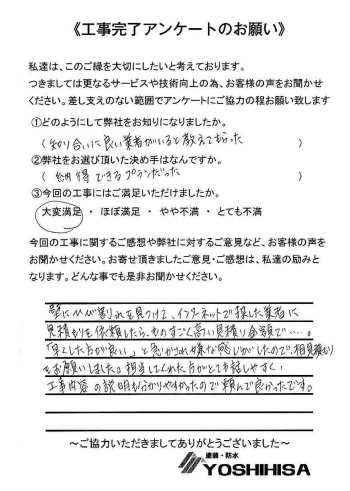 《工事完了アンケートのお願い》
私達は、このご縁を大切にしたいと考えております。
つきましては更なるサービスや技術向上の為、お客様の声をお聞かせ
ください。差し支えのない範囲でアンケートにご協力の程お願い致します
①どのようにして弊社をお知りになりましたか。
(知り合いに良い業者がいると教えてもらった)
②弊社をお選び頂いた決め手はなんですか。
(納得できるプランだった)
③今回の工事にはご満足いただけましたか。
大変満足 ・ ほぼ満足 ・ やや不満 ・ とても不満
今回の工事に関するご感想や弊社に対するご意見など、お客様の声を
お聞かせください。お寄せ頂きましたご意見・ご感想は、私達の励みと
なります。どんな事でも是非お聞かせください。
壁にひび割れを見つけて、インターネットで探した業者に
見積もりを依頼したら、ものすごく高い見積り金額で…。
「早くした方が良い」と急かされ嫌な感じがしたので、相見積もり
をお願いしました。担当してくれた方がとても話しやすく、
工事内容の説明も分かりやすかったので頼んで良かったです。
～ご協力いただきましてありがとうございました～
塗装・防水
YOSHIHISA